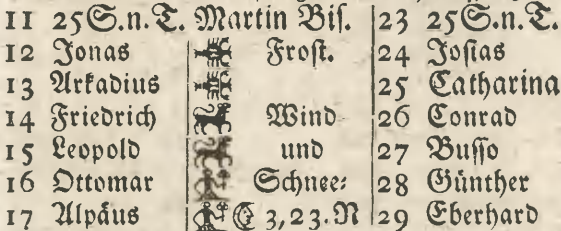 11 25 S. n. T. Martin Bis. 23 25 S. n. T.
12 Jonas Frost. 24 Josias
13 Arkadius 25 Catharina
14 Friedrich Wind 26 Conrad
15 Leopold und 27 Busso
16 Ottomar Schnee: 28 Günther
17 Alpäus ☾ 3, 23. N 29 Eberhard